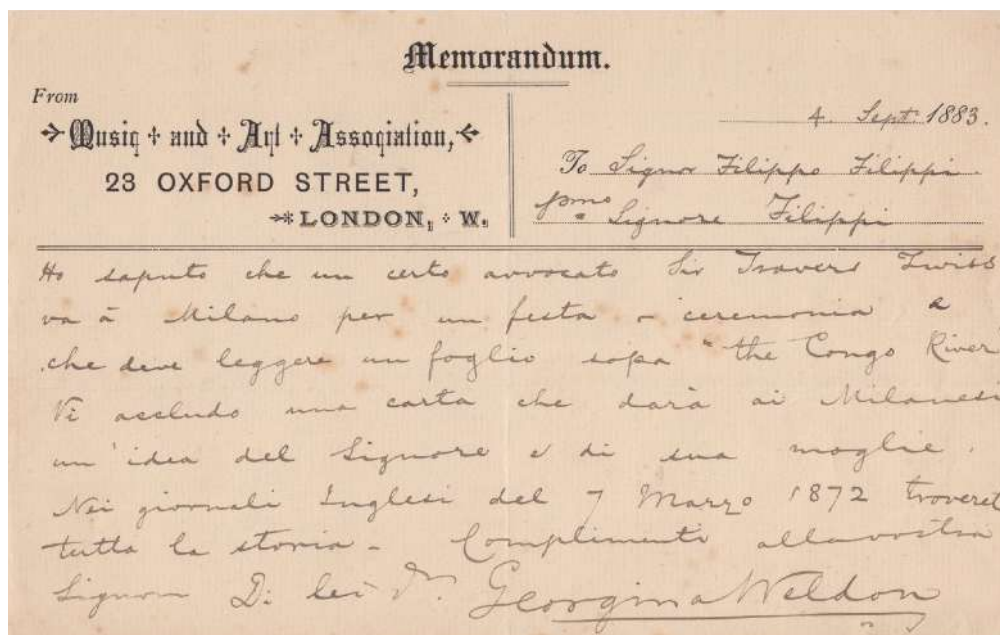 Memorandum.
From
Musiq and Art Assoqiation,
23 OXFORD STREET,
LONDON, W.
4. Sept. 1883.
To Signor Filippo Filippi.
pmo Signore Filippi
Ho saputo che un certo avvocato Sir Travers Twiss
va à Milano per un festa o ceremonia e
che deve leggere un foglio sopa "the Congo River
Vi accludo una carta che darà ai Milanesi
un'idea del Signore e di sua moglie.
Nei giornali Inglesi del 7 Marzo 1872 troveret
tutta la storia - Complimenti alla vostra
Signora Di lei Georgina Weldon